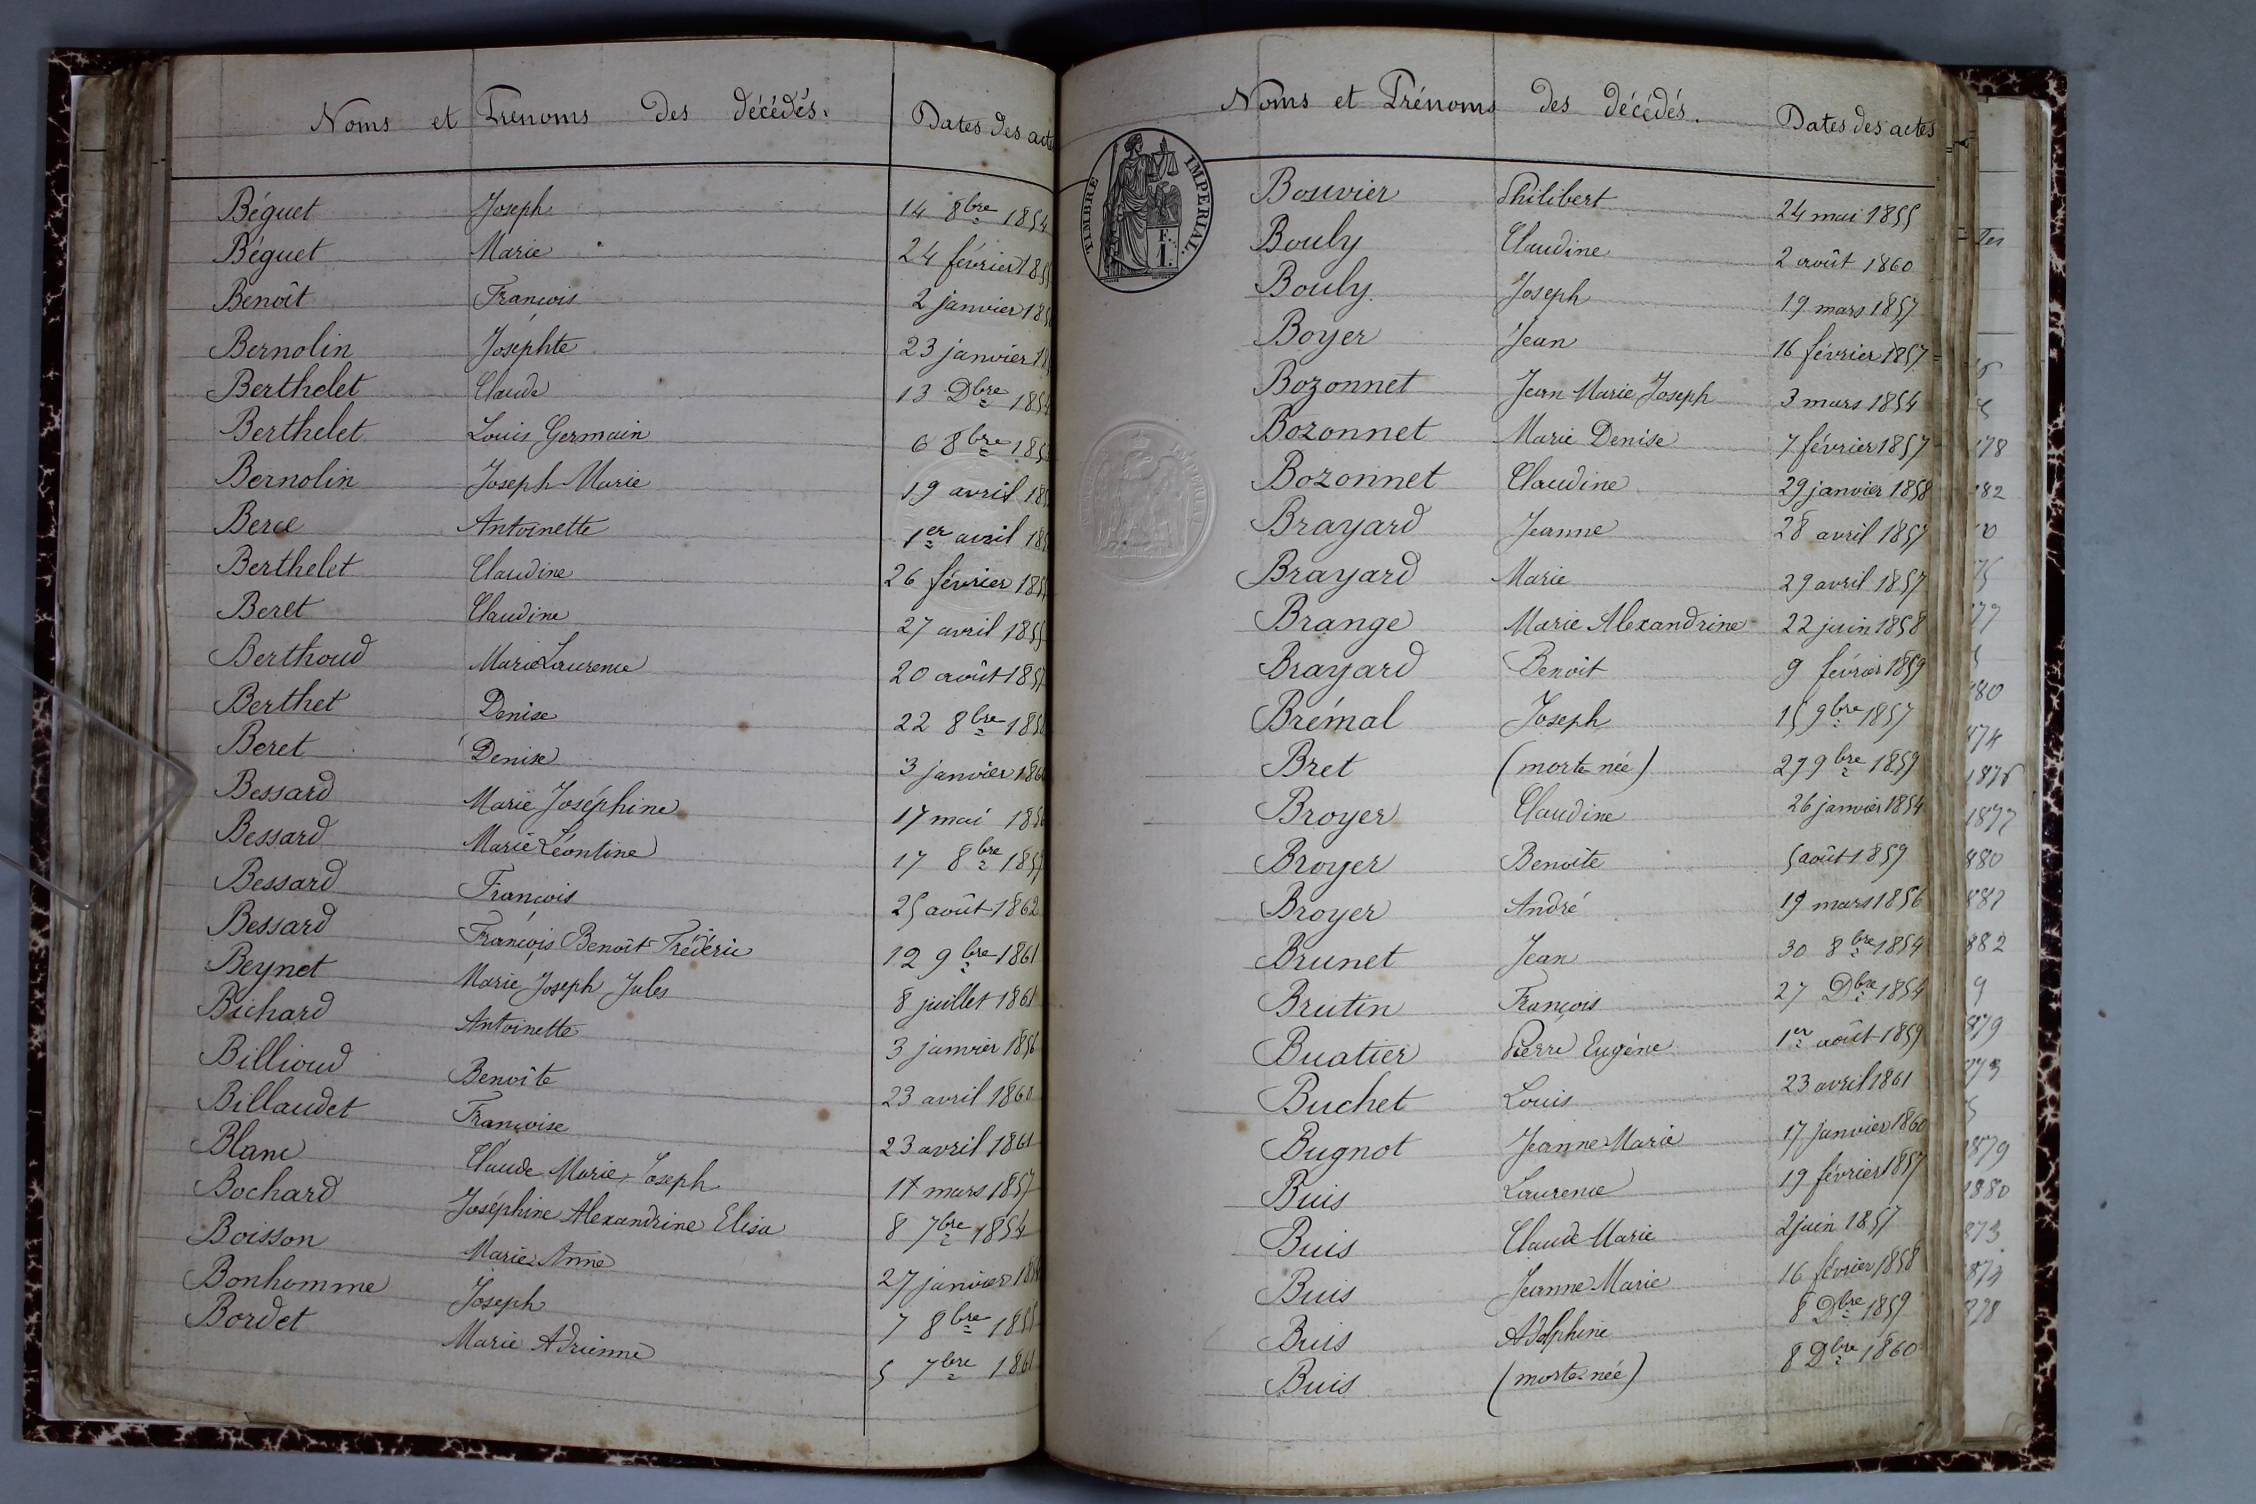 Noms et Prénoms des décédés. Dates des actes
Béguet Joseph 14 8bre 1854
Béguet Marie 24 février 185
Benoît François 2 janvier 18
Bernolin Josephte 23 janvier 1
Berthelet Claude 13 Dbre 1854
Berthelet Louis Germain 6 8bre 185
Bernolin Joseph Marie 19 avril 18
Berce Antoinette 1er avril 18
Berthelet Claudine 26 février 185
Beret Claudine 27 avril 1855
Berthoud Marie Laurence 20 août 185
Berthet Denise 22 8bre 185
Beret Denise 3 janvier 186
Bessard Marie Joséphine 17 mai 185
Bessard Marie Léontine 17 8bre 185
Bessard François 25 août 1862
Bessard François Benoît Frédéric 12 9bre 1861
Beynet Marie Joseph Jules 8 juillet 1861
Bichard Antoinette 3 janvier 1856
Billioud Benoîte 23 avril 1860
Billaudet Françoise 23 avril 1861
Blanc Claude Marie Joseph mars 1857
Bochard Joséphine Alexandrine Elisa 8 7bre 1854
Boisson Marie Anne 27 janvier 18
Bonhomme Joseph 7 8bre 1855
Bordet Marie Adrienne 5 7bre 1861
Noms et Prénoms des décédés. Dates des actes
TIMBRE IMPERIAL.
F.
1.
Bouvier Philibert 24 mai 1855
Bouly Claudine 2 août 1860
Bouly Joseph 19 mars 1857
Boyer Jean 16 février 1857
Bozonnet Jean Marie Joseph 3 mars 1854
Bozonnet Marie Denise 7 février 1857
Bozonnet Claudine 29 janvier 1858
Brayard Jeanne 28 avril 1857
Brayard Marie 29 avril 1857
Brange Marie Alexandrine 22 juin 1858
Brayard Benoit 9 février 1859
Brémal Joseph 15 9bre 1857
Bret (morte née) 29 9bre 1859
Broyer Claudine 26 janvier 1854
Broyer Benoîte 5 août 1859
Broyer André 19 mars 1856
Brunet Jean 30 8bre 1854
Brutin François 27 Dbre 1854
Buatier Pierre Eugène 1er août 1859
Buchet Louis 23 avril 1861
Bugnot Jeanne Marie 17 janvier 1860
Buis Laurence 19 février 1857
Buis Claude Marie 2 juin 1857
Buis Jeanne Marie 16 février 1858
Buis Adolphine 8 Dbre 1859
Buis (morte née) 8 Dbre 1860